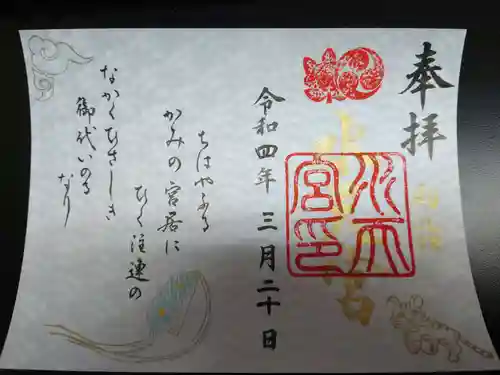 奉拝
水天宮印
令和四年 三月二十日
ちはやふる
かみの宮居に
ひく注連の
なかくひさしき
御代いのる
なり